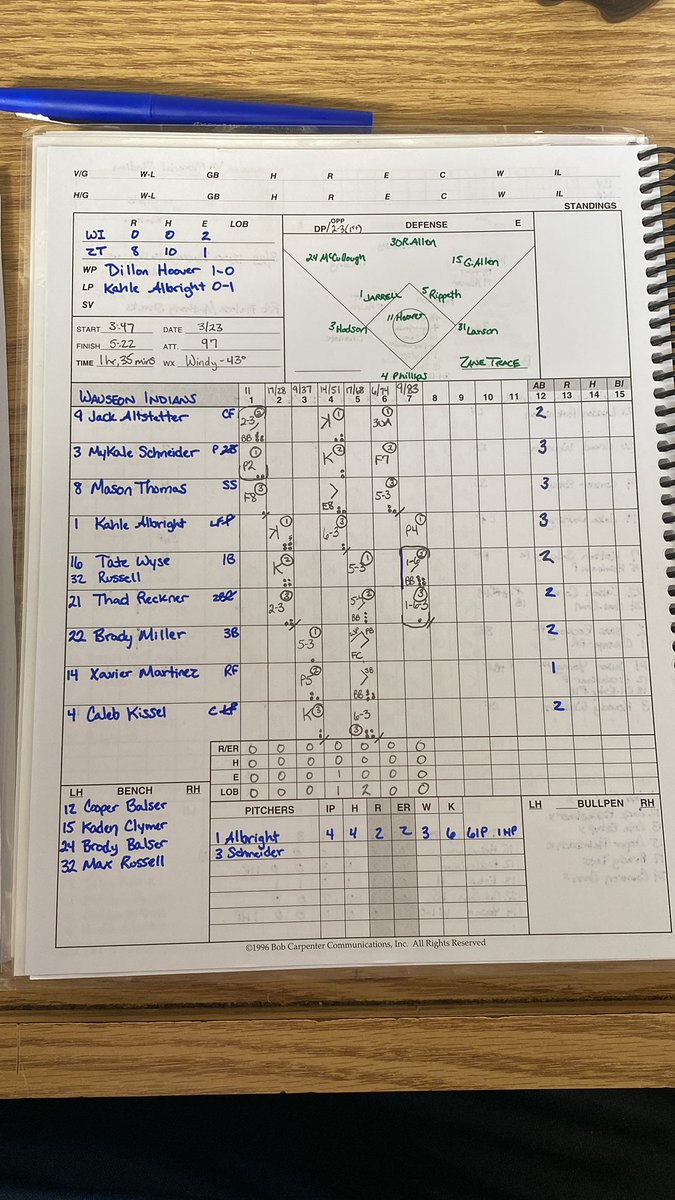 V/G W-L GB H R E C W IL
H/G W-L GB H R E C W IL
STANDINGS
R H E LOB
WI 0 0 2
ZT 8 10 1
WP Dillon Hoover 1-0
LP Kahle Albright 0-1
SV
START 3:47 DATE 3/23
FINISH 5:22 ATT. 97
TIME 1hr, 35 mins WX Windy - 43°
OPP
DP/2-3(1st) DEFENSE E
30 R. Allen
24 McCullough
15 G. Allen
1 JARRELL 5 Rippeth
11 Hoover
3 Hodson 31 Larson
4 Phillips ZANE TRACE
WAUSEON INDIANS 11 17/28 9/37 14/51 17/68 6/74 9/83 AB R H BI
1 2 3 4 5 6 7 8 9 10 11 12 13 14 15
9 Jack Altstatter CF 2-3 2 BB K 1 3UA 1 2
3 MyKale Schneider P 2B P2 1 K 2 F7 2 3
8 Mason Thomas SS F8 3 E8 5-3 3 3
1 Kahle Albright LF P K 1 6-3 3 P4 1 3
16 Tate Wyse 1B K 2 5-3 1 1-6 2 BB 2
32 Russell
21 Thad Reckner 2B 2-3 3 5-4 2 BB 1-6-3 3 2
22 Brady Miller 3B 5-3 1 WP PB FC 2
14 Xavier Martinez RF P5 2 SB BB 1
4 Caleb Kissel C K 3 6-3 3 2
R/ER 0 0 0 0 0 0 0
H 0 0 0 0 0 0 0
E 0 0 0 1 0 0 0
LOB 0 0 0 1 2 0 0
LH BENCH RH
12 Cooper Balser
15 Kaden Clymer
24 Brody Balser
32 Max Russell
PITCHERS IP H R ER W K
1 Albright 4 4 2 2 3 6 61P 1HP
3 Schneider
LH BULLPEN RH
©1996 Bob Carpenter Communications, Inc. All Rights Reserved